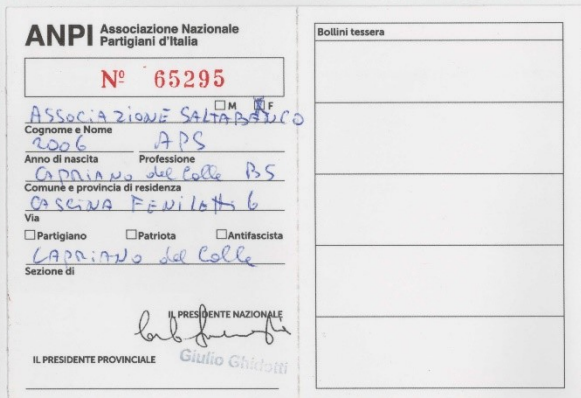 ANPI Associazione Nazionale
Partigiani d'Italia
Nº 65295
M F
ASSOCIAZIONE SALTABANCO
Cognome e Nome
2006 APS
Anno di nascita Professione
CAPRIANO del Colle BS
Comune e provincia di residenza
CASCINA FENILETTI 6
Via
Partigiano Patriota Antifascista
CAPRIANO del Colle
Sezione di
IL PRESIDENTE NAZIONALE
IL PRESIDENTE PROVINCIALE Giulio Ghidotti
Bollini tessera